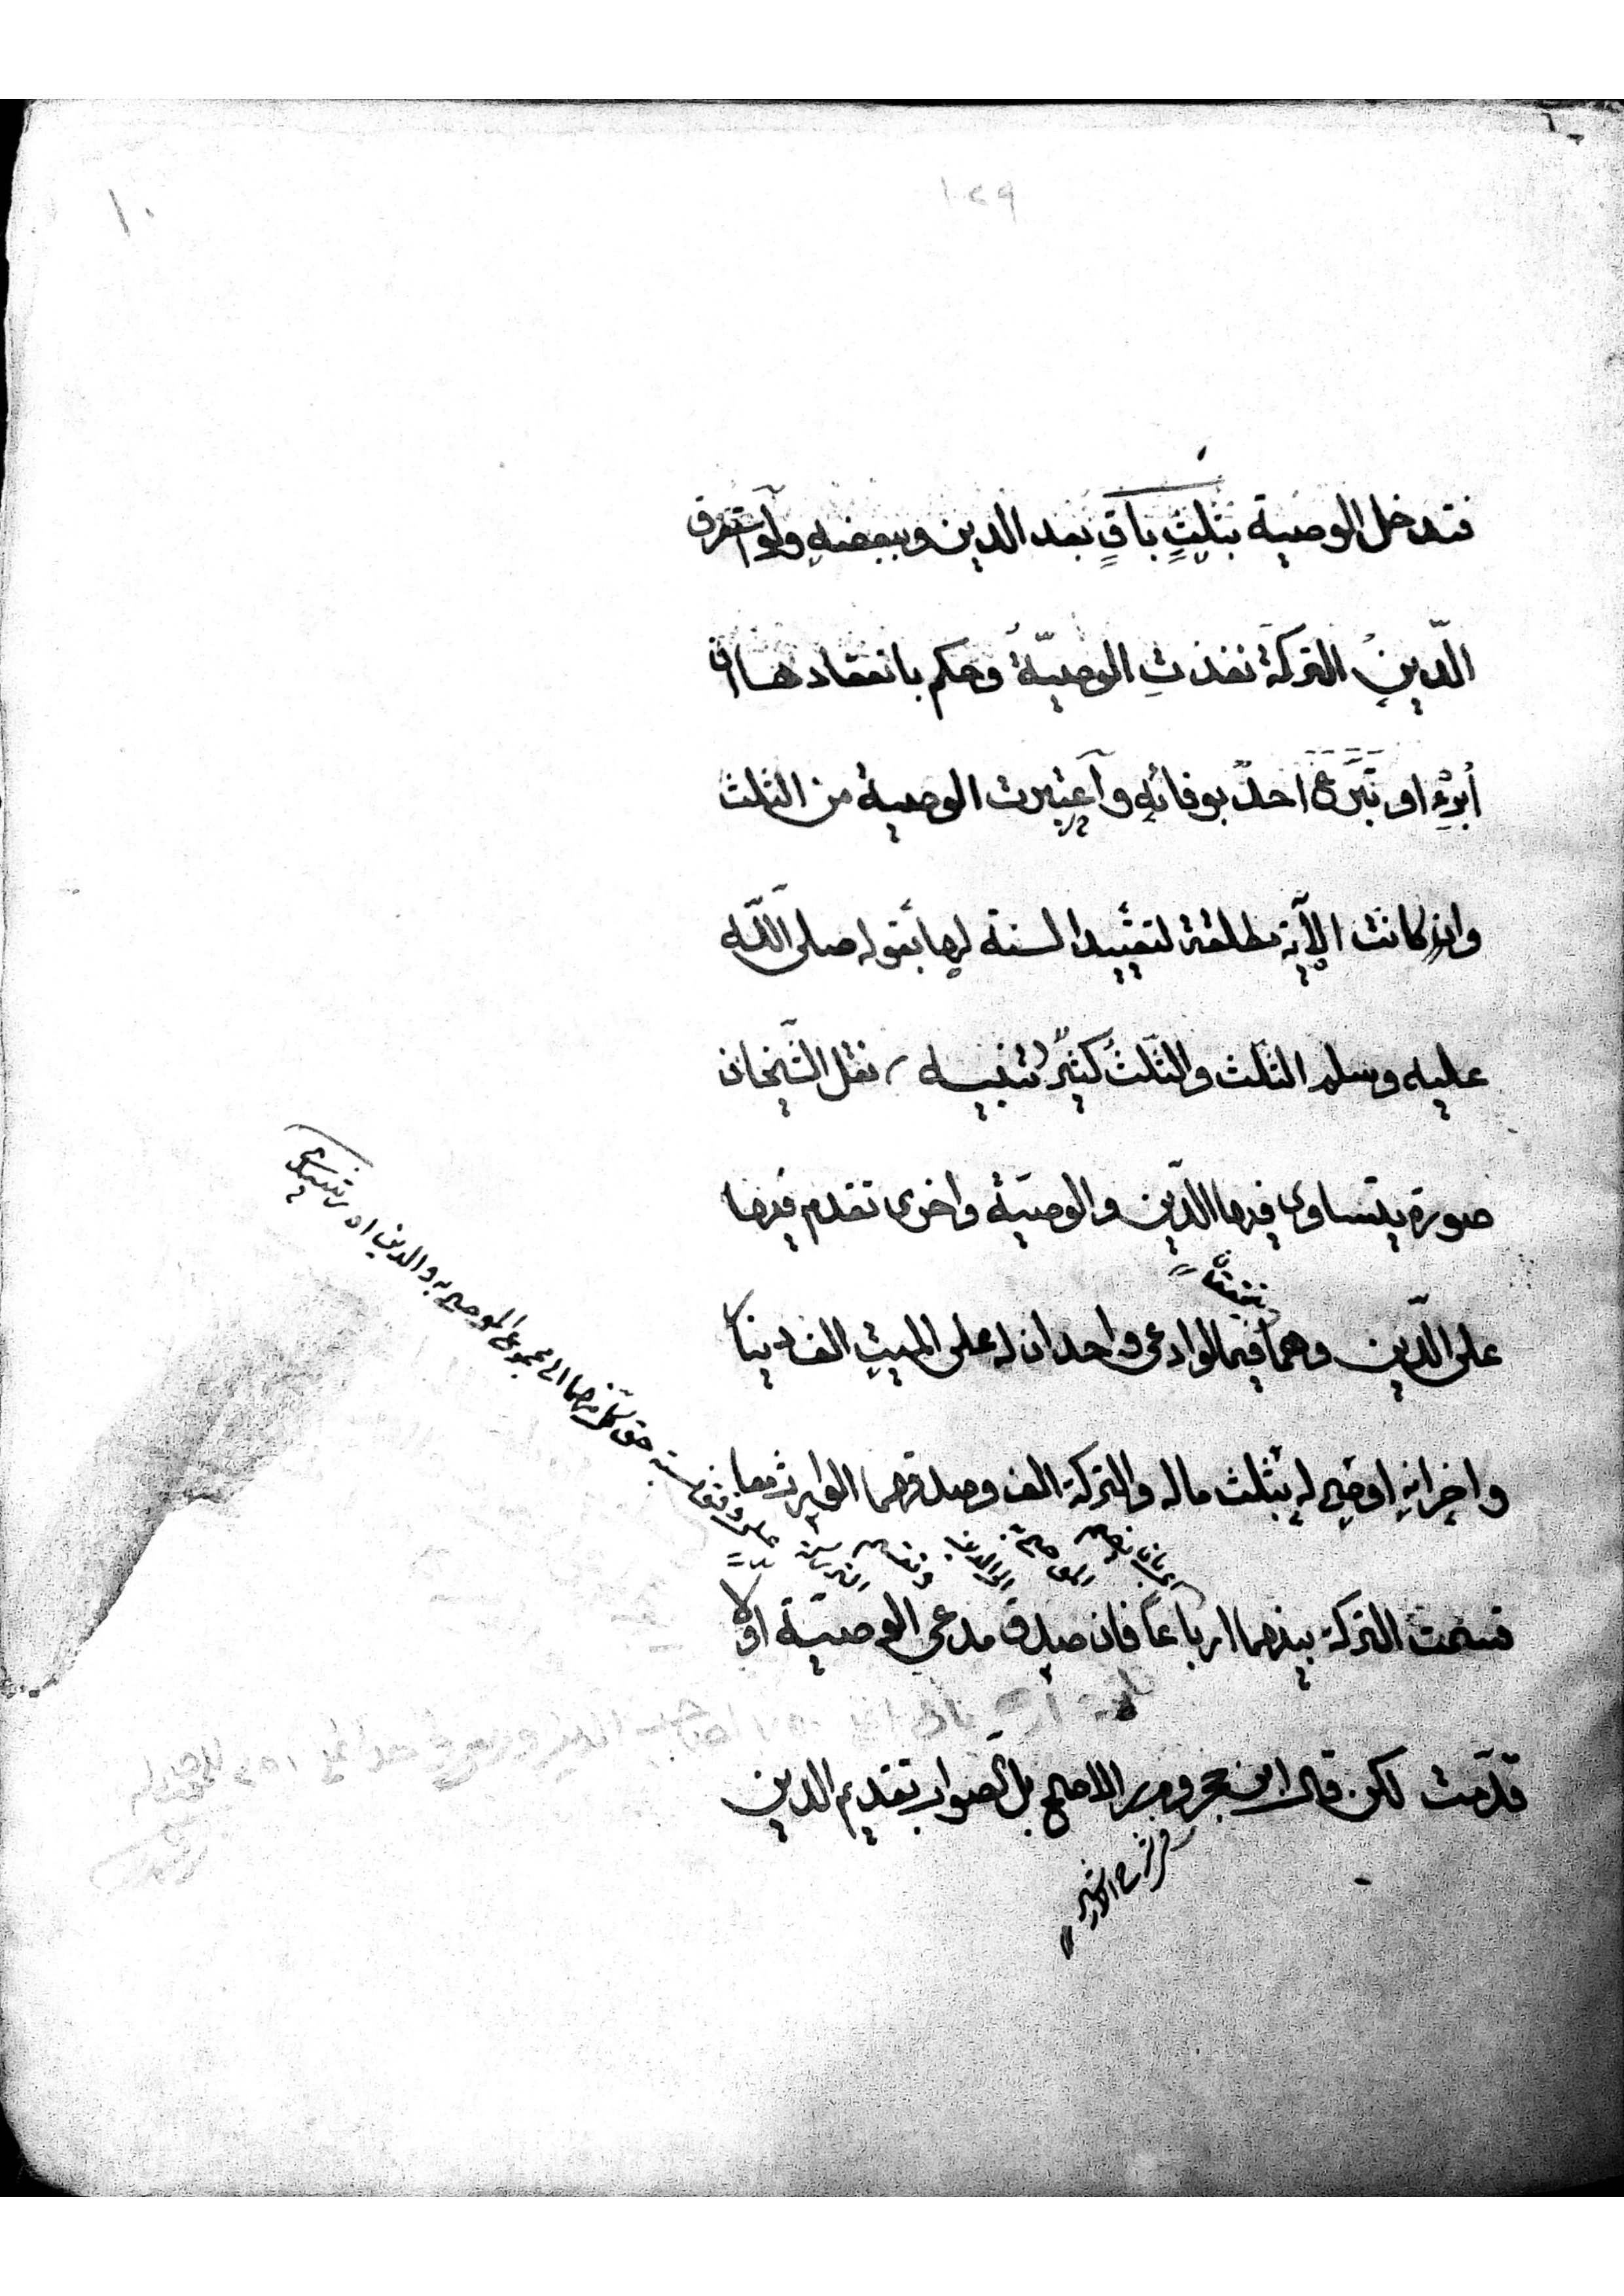 ١٠
١٠٤٩
فتدخل الوصية بثلثٍ باقٍ بعد الدين وببعضهِ ولو استغرق
الدّين التركة نفذتِ الوصيّة وحكم بانعقادها ان
أبرءِ او تبَرّع احدٌ بوفائهِ واعتبرت الوصية من الثلث
وان كانت الآية مطلقة لتقييد السنة لها بقوله صلى اللّه
عليه وسلم الثلث والثلث كثيرٌ تنبيه نقل الشيخان
صورة يتساوى فيها الدّين والوصيّة واخرى تقدم فيها
على الدّين وهما فيما لوادعى واحد ان له على الميت الف دينا
واخر انهِ اوصى له بثلث ماله والتركة الف وصدقهما الوارث معا
قسمت التركة بينهما ارباعاً فان صدق مدعي الوصيّة اوّلا
قدّمت لكن قال ابن حجر وم ر الاصح بل الصواب تقديم الدين
حق كل منهما الى مجموع الموصى به والدين اه رشيدي